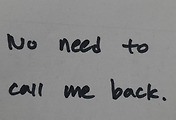 No need to
call me back.